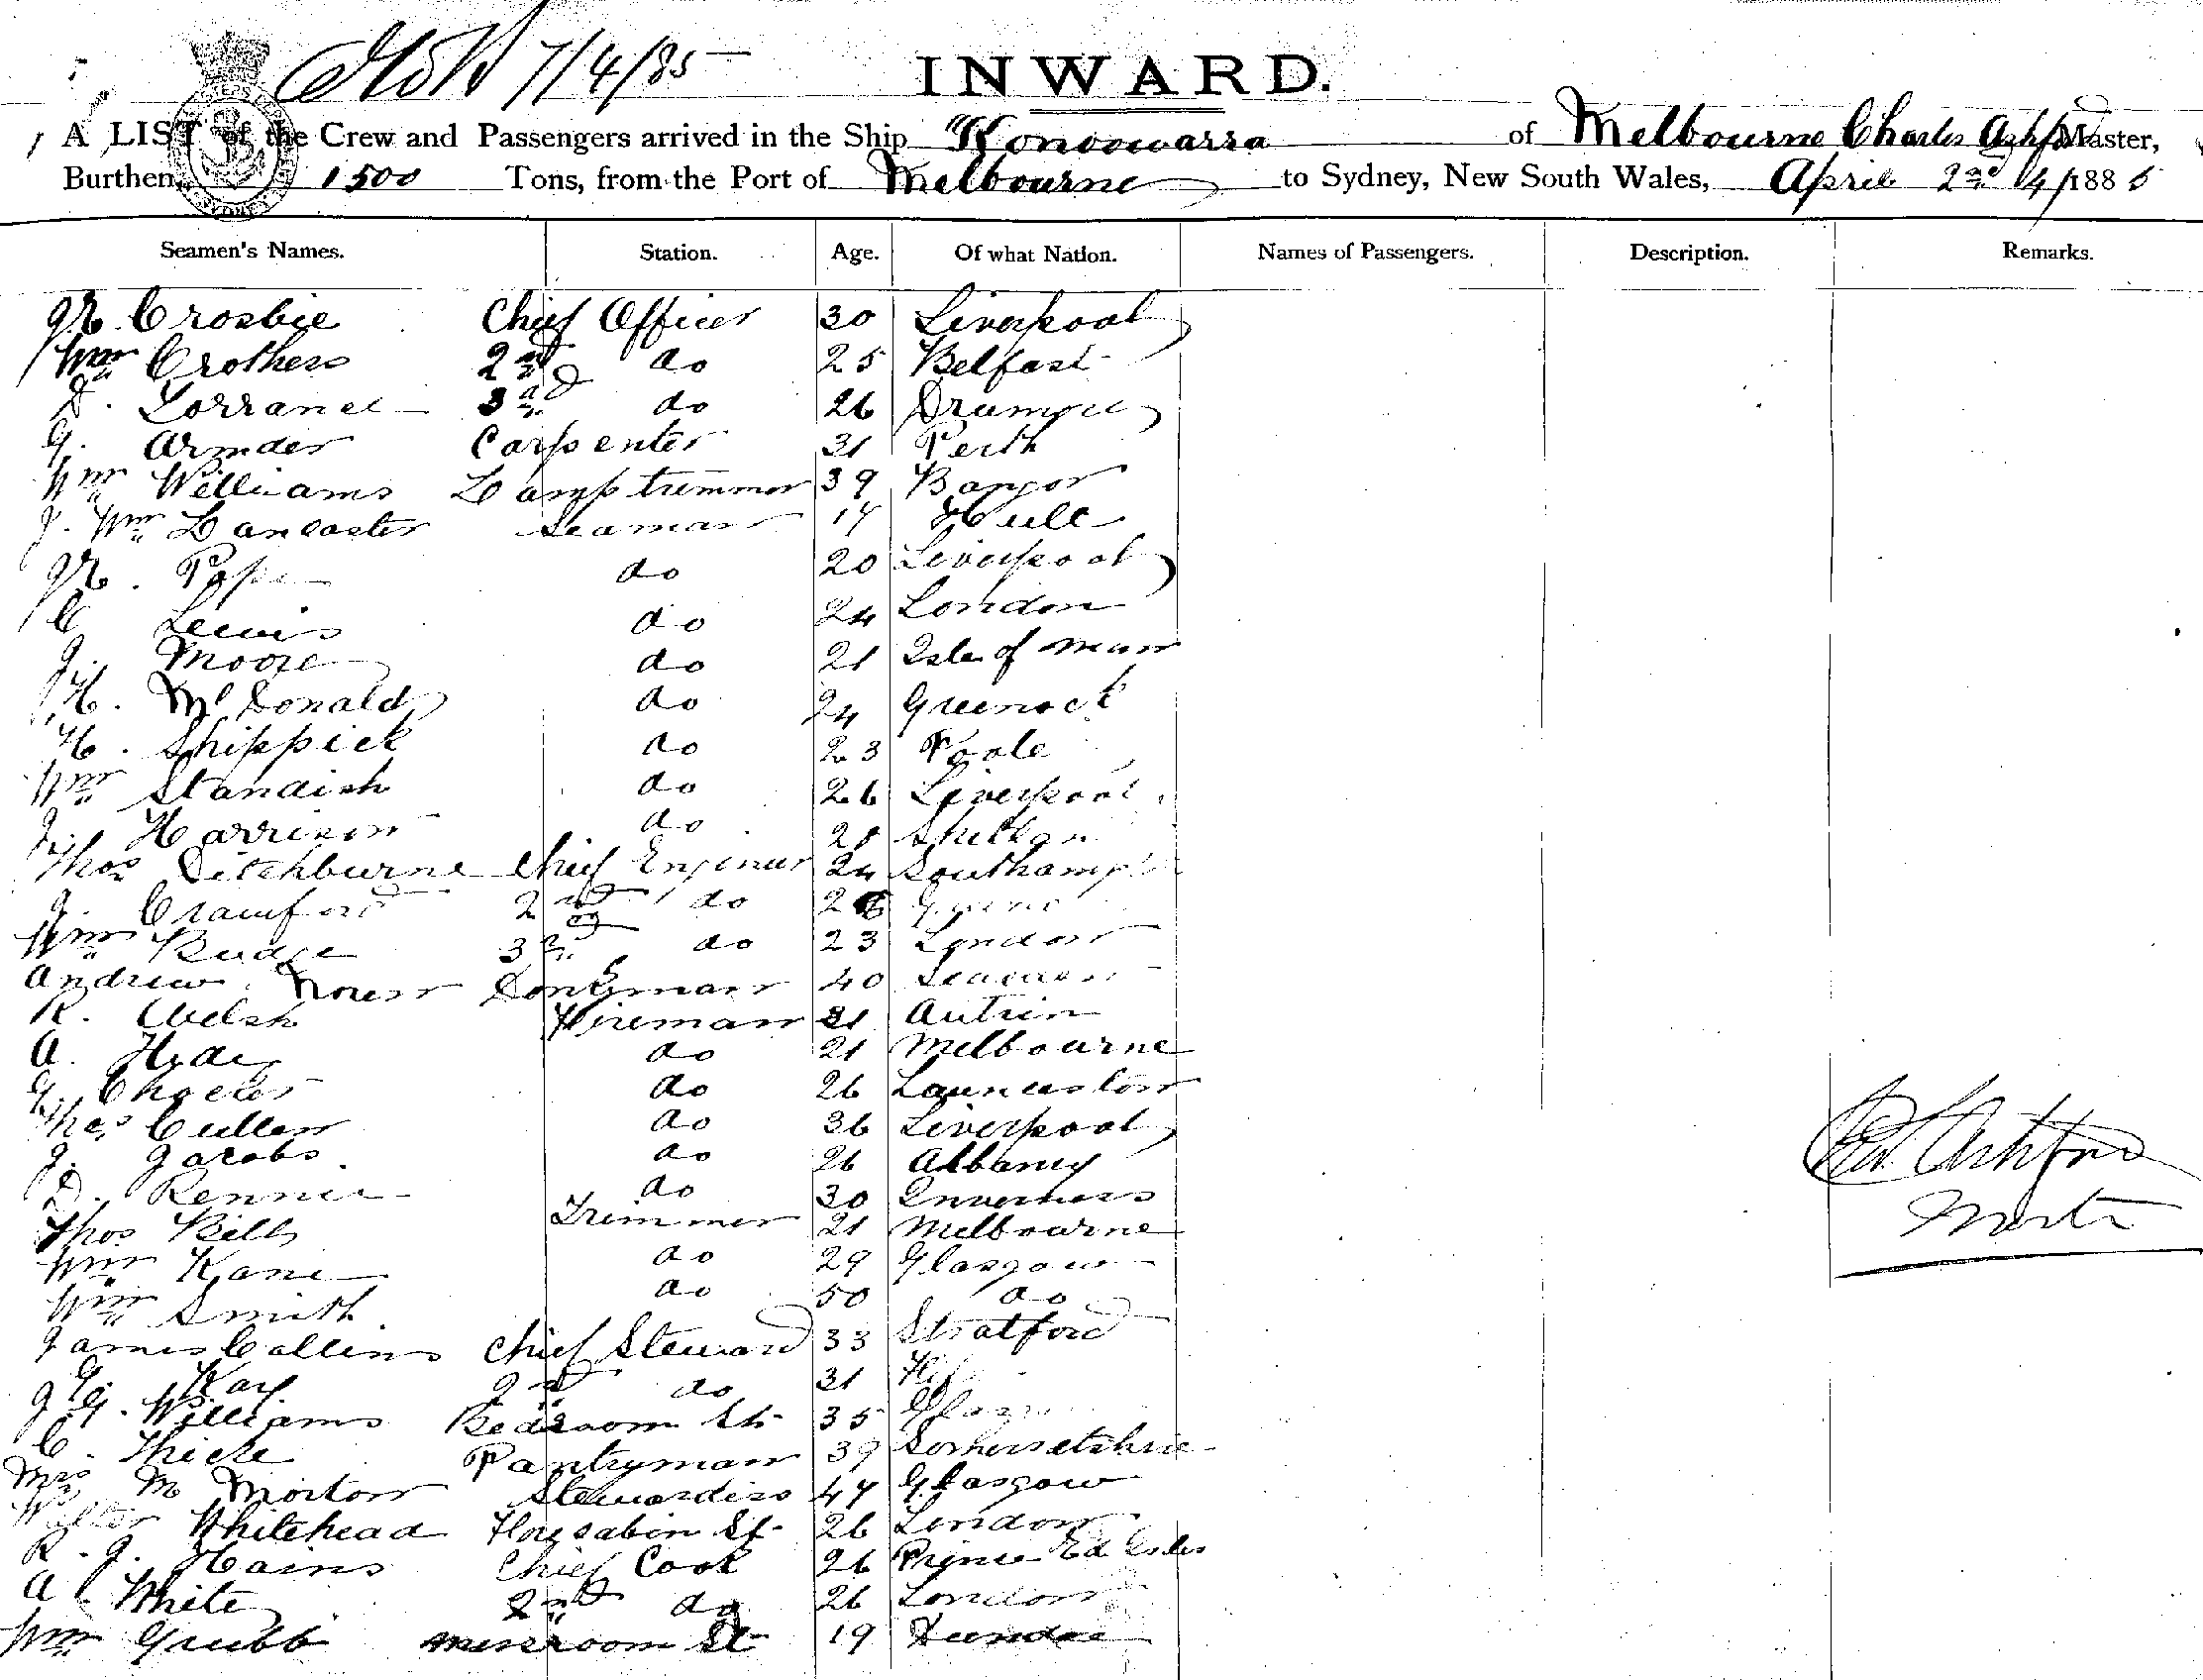 7/4/85
INWARD.
A LIST of the Crew and Passengers arrived in the Ship Konoowarra of Melbourne Charles Ashford Master,
Burthen, 1500 Tons, from the Port of Melbourne to Sydney, New South Wales, April 2nd /4/1885
Seamen's Names. Station. Age. Of what Nation. Names of Passengers. Description. Remarks.
Crosbie Chief Officer 30 Liverpool
Wm Crothers 2nd do 25 Belfast
D. Lorrance 3rd do 26
G. Armder Carpenter 31 Perth
Wm Williams Lamptrimmer 39 Bangor
J. Wm Lancaster Seaman 17 Hull
Pope do 20 Liverpool
C Lewis do 24 London
J. Moore do 21 Isle of Man
H. McDonald do 24 Greenock
H. Shippick do 23 Poole
Wm Standish do 26 Liverpool
J. Harrison do
Thos Ditchburne Chief Engineer 24 Southampt
J. Crawford 2nd do
Wm Budge 3rd do 23 London
Andrew Donkyman 40
R. Welsh Fireman 31 Antrim
A. Hyde do 21 Melbourne
G. do 26 Launceston
Thos Cullen do 36 Liverpool
J. Jacobs do 26 Albany
D. Rennie do 30 Inverness
Thos Bills Trimmer 21 Melbourne
Wm Kane do 29 Glasgow
Wm Smith do 50 do
James Collins Chief Steward 33 Stratford
G. Kay 2nd do 31
J. G. Williams Bedroom St 35 Glasgow
C. Thicke Pantryman 39 Somersetshire
Mrs M Morton Stewardess 47 Glasgow
Walter Whitehead Fore cabin St 26 London
R. J. Hains Chief Cook 26 Prince Ed Isles
A White 2nd do 26 London
Wm Grubb Messroom St 19 Dundee
Chas. Ashford
Master